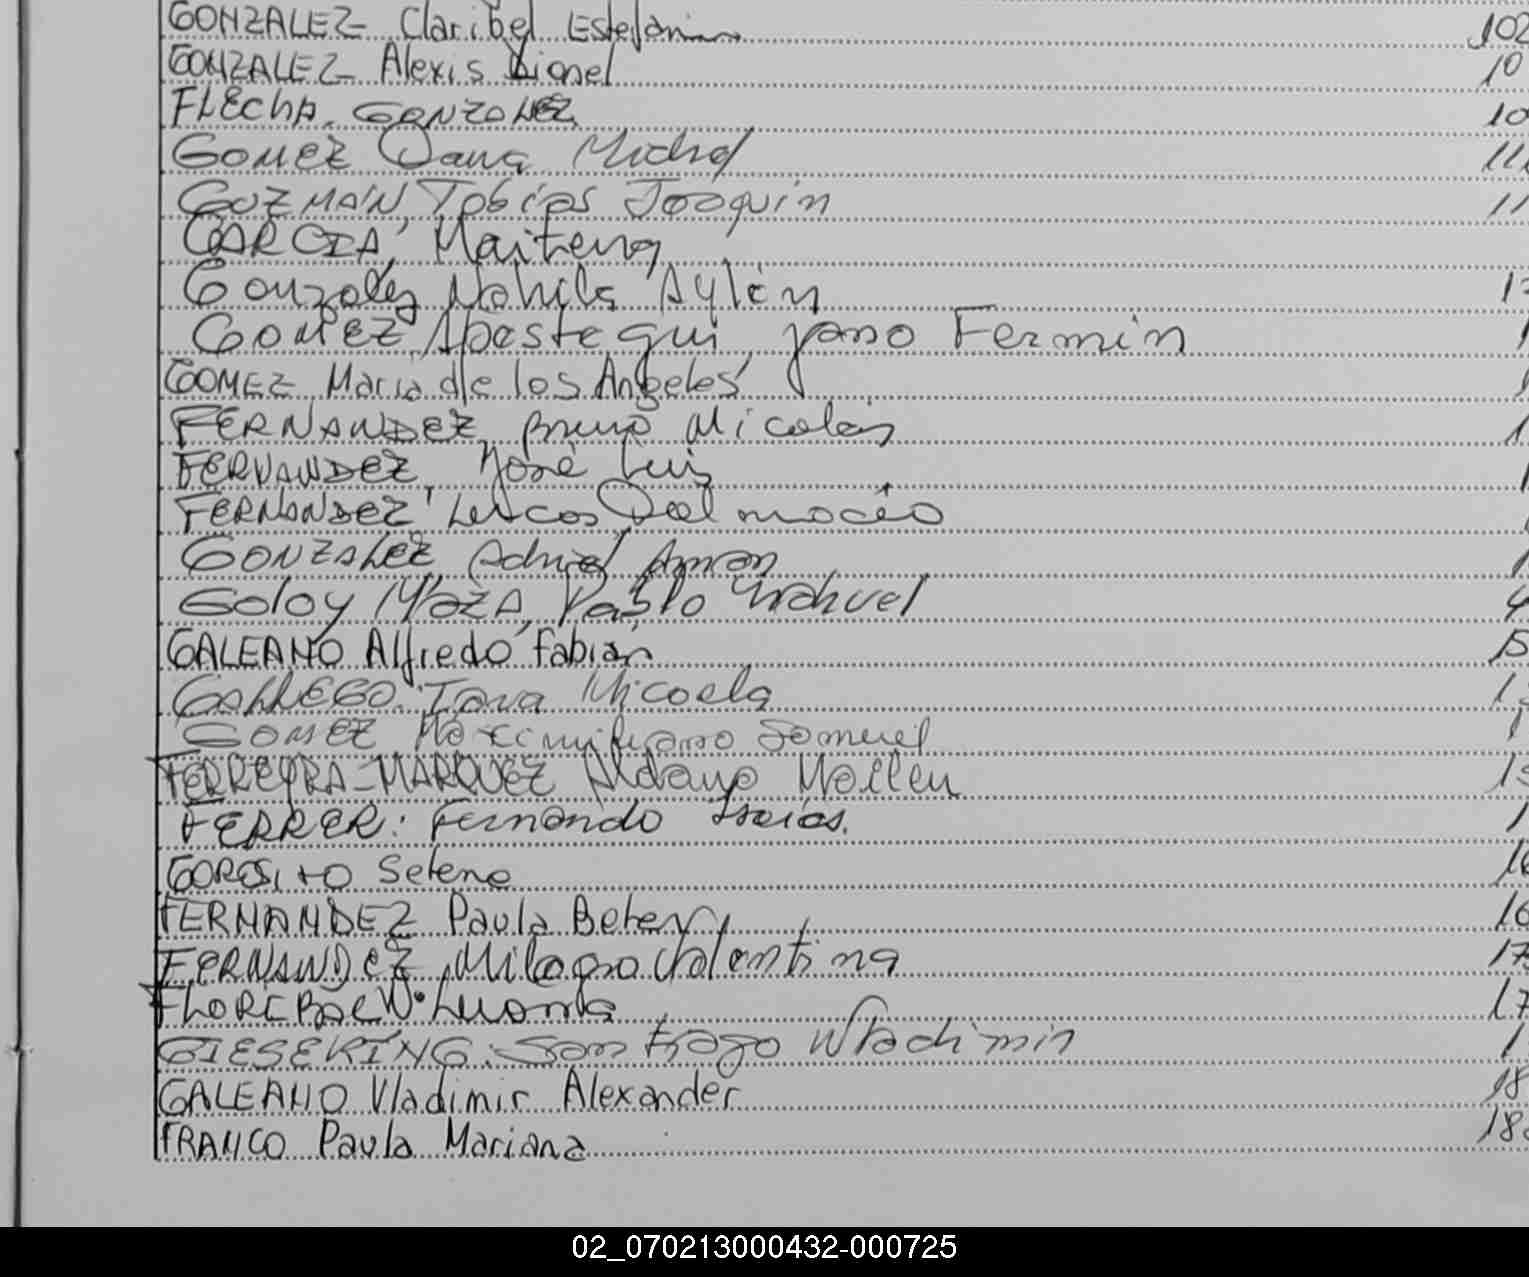 GONZALEZ Claribel Estefania 102
GONZALEZ Alexis Lionel 10
FLEchA. GONZALEZ 10
GOMEZ Dana Michel 11
GUZMÁN, Tobías Joaquín 11
GARCIA, Maitena
Gonzalez Nahila Aylén 1
GOMEZ, Apestegui, jano Fermin 1
GOMEZ María de los Angeles
FERNANDEZ, Bruno Nicolás 1
FERNANDEZ, José Luis 1
FERNANDEZ Lucas Dalmacio
GONZALEZ Adriel Aman
Goloy Maza, Pablo Nahuel
GALEANO Alfredo Fabián 15
GALLEGO. Iara Micaela 1
GOMEZ Maximiliano Samuel 1
FERREYRA-MARQUEZ Aldana Mailen 15
FERRER: Fernando Isaías. 1
GOROSITO Selene 16
FERNANDEZ Paula Belen 16
FERNANDEZ, Milagro Valentina 17
Luanna 17
GIESEKING. Santiago Wladimir 1
GALEANO Vladimir Alexander 18
FRANCO Paula Mariana 18
02_070213000432-000725